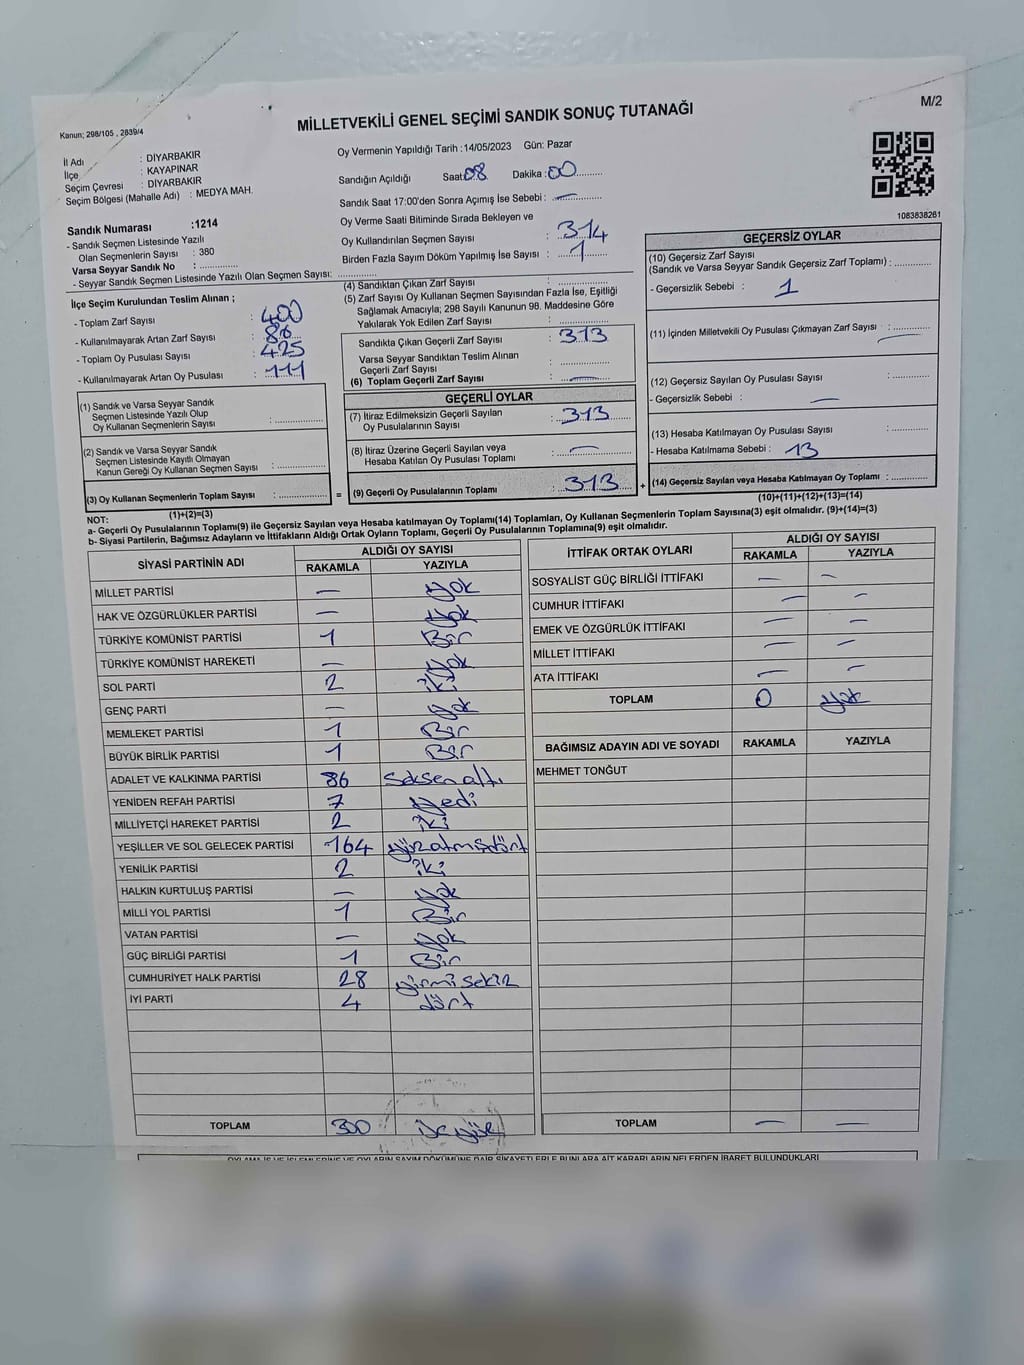 M/2
Kanun; 298/105 , 2839/4
MİLLETVEKİLİ GENEL SEÇİMİ SANDIK SONUÇ TUTANAĞI
İl Adı : DİYARBAKIR
İlçe : KAYAPINAR
Seçim Çevresi : DİYARBAKIR
Seçim Bölgesi (Mahalle Adı) : MEDYA MAH.
Oy Vermenin Yapıldığı Tarih : 14/05/2023 Gün: Pazar
Sandığın Açıldığı Saat: 08 Dakika : 00
Sandık Saat 17:00'den Sonra Açımış İse Sebebi : —
Oy Verme Saati Bitiminde Sırada Bekleyen ve
Oy Kullandırılan Seçmen Sayısı : 314
Birden Fazla Sayım Döküm Yapılmış İse Sayısı : 1
1083838261
Sandık Numarası :1214
- Sandık Seçmen Listesinde Yazılı
Olan Seçmenlerin Sayısı : 380
Varsa Seyyar Sandık No :
- Seyyar Sandık Seçmen Listesinde Yazılı Olan Seçmen Sayısı:
İlçe Seçim Kurulundan Teslim Alınan ;
- Toplam Zarf Sayısı : 400
- Kullanılmayarak Artan Zarf Sayısı : 86
- Toplam Oy Pusulası Sayısı : 425
- Kullanılmayarak Artan Oy Pusulası : 111
(1) Sandık ve Varsa Seyyar Sandık
Seçmen Listesinde Yazılı Olup
Oy Kullanan Seçmenlerin Sayısı :
(2) Sandık ve Varsa Seyyar Sandık
Seçmen Listesinde Kayıtlı Olmayan
Kanun Gereği Oy Kullanan Seçmen Sayısı :
(3) Oy Kullanan Seçmenlerin Toplam Sayısı :
(1)+(2)=(3)
(4) Sandıktan Çıkan Zarf Sayısı :
(5) Zarf Sayısı Oy Kullanan Seçmen Sayısından Fazla İse, Eşitliği
Sağlamak Amacıyla; 298 Sayılı Kanunun 98. Maddesine Göre
Yakılarak Yok Edilen Zarf Sayısı :
Sandıkta Çıkan Geçerli Zarf Sayısı : 313
Varsa Seyyar Sandıktan Teslim Alınan
Geçerli Zarf Sayısı :
(6) Toplam Geçerli Zarf Sayısı : —
GEÇERLİ OYLAR
(7) İtiraz Edilmeksizin Geçerli Sayılan
Oy Pusulalarının Sayısı : 313
(8) İtiraz Üzerine Geçerli Sayılan veya
Hesaba Katılan Oy Pusulası Toplamı : —
= (9) Geçerli Oy Pusulalarının Toplamı : 313 +
GEÇERSİZ OYLAR
(10) Geçersiz Zarf Sayısı
(Sandık ve Varsa Seyyar Sandık Geçersiz Zarf Toplamı) :
- Geçersizlik Sebebi : 1
(11) İçinden Milletvekili Oy Pusulası Çıkmayan Zarf Sayısı : —
(12) Geçersiz Sayılan Oy Pusulası Sayısı :
- Geçersizlik Sebebi : —
(13) Hesaba Katılmayan Oy Pusulası Sayısı :
- Hesaba Katılmama Sebebi : 13
(14) Geçersiz Sayılan veya Hesaba Katılmayan Oy Toplamı :
(10)+(11)+(12)+(13)=(14)
NOT:
a- Geçerli Oy Pusulalarının Toplamı(9) ile Geçersiz Sayılan veya Hesaba katılmayan Oy Toplamı(14) Toplamları, Oy Kullanan Seçmenlerin Toplam Sayısına(3) eşit olmalıdır. (9)+(14)=(3)
b- Siyasi Partilerin, Bağımsız Adayların ve İttifakların Aldığı Ortak Oyların Toplamı, Geçerli Oy Pusulalarının Toplamına(9) eşit olmalıdır.
SİYASİ PARTİNİN ADI ALDIĞI OY SAYISI
RAKAMLA YAZIYLA
MİLLET PARTİSİ — Yok
HAK VE ÖZGÜRLÜKLER PARTİSİ — Yok
TÜRKİYE KOMÜNİST PARTİSİ 1 Bir
TÜRKİYE KOMÜNİST HAREKETİ — Yok
SOL PARTİ 2 iki
GENÇ PARTİ — Yok
MEMLEKET PARTİSİ 1 Bir
BÜYÜK BİRLİK PARTİSİ 1 Bir
ADALET VE KALKINMA PARTİSİ 86 Seksen altı
YENİDEN REFAH PARTİSİ 7 Yedi
MİLLİYETÇİ HAREKET PARTİSİ 2 iki
YEŞİLLER VE SOL GELECEK PARTİSİ 164 yüzatmışdört
YENİLİK PARTİSİ 2 iki
HALKIN KURTULUŞ PARTİSİ — Yok
MİLLİ YOL PARTİSİ 1 Bir
VATAN PARTİSİ — Yok
GÜÇ BİRLİĞİ PARTİSİ 1 Bir
CUMHURİYET HALK PARTİSİ 28 yirmi sekiz
İYİ PARTİ 4 dört
TOPLAM 300 üç yüz
İTTİFAK ORTAK OYLARI ALDIĞI OY SAYISI
RAKAMLA YAZIYLA
SOSYALİST GÜÇ BİRLİĞİ İTTİFAKI — —
CUMHUR İTTİFAKI — —
EMEK VE ÖZGÜRLÜK İTTİFAKI — —
MİLLET İTTİFAKI — —
ATA İTTİFAKI — —
TOPLAM 0 yok
BAĞIMSIZ ADAYIN ADI VE SOYADI RAKAMLA YAZIYLA
MEHMET TONĞUT
TOPLAM — —
OYLAMA İŞ VE İŞLEMLERİNE VE OYLARIN SAYIM DÖKÜMÜNE DAİR ŞİKAYETLERLE BUNLARA AİT KARARLARIN NELERDEN İBARET BULUNDUKLARI